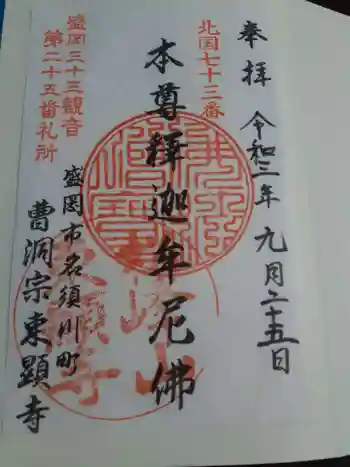 奉拝 令和三年九月二十五日
北国七十三番
本尊釋迦牟尼佛
盛岡三十三観音
第二十五番礼所
盛岡市名須川町
曹洞宗東顯寺